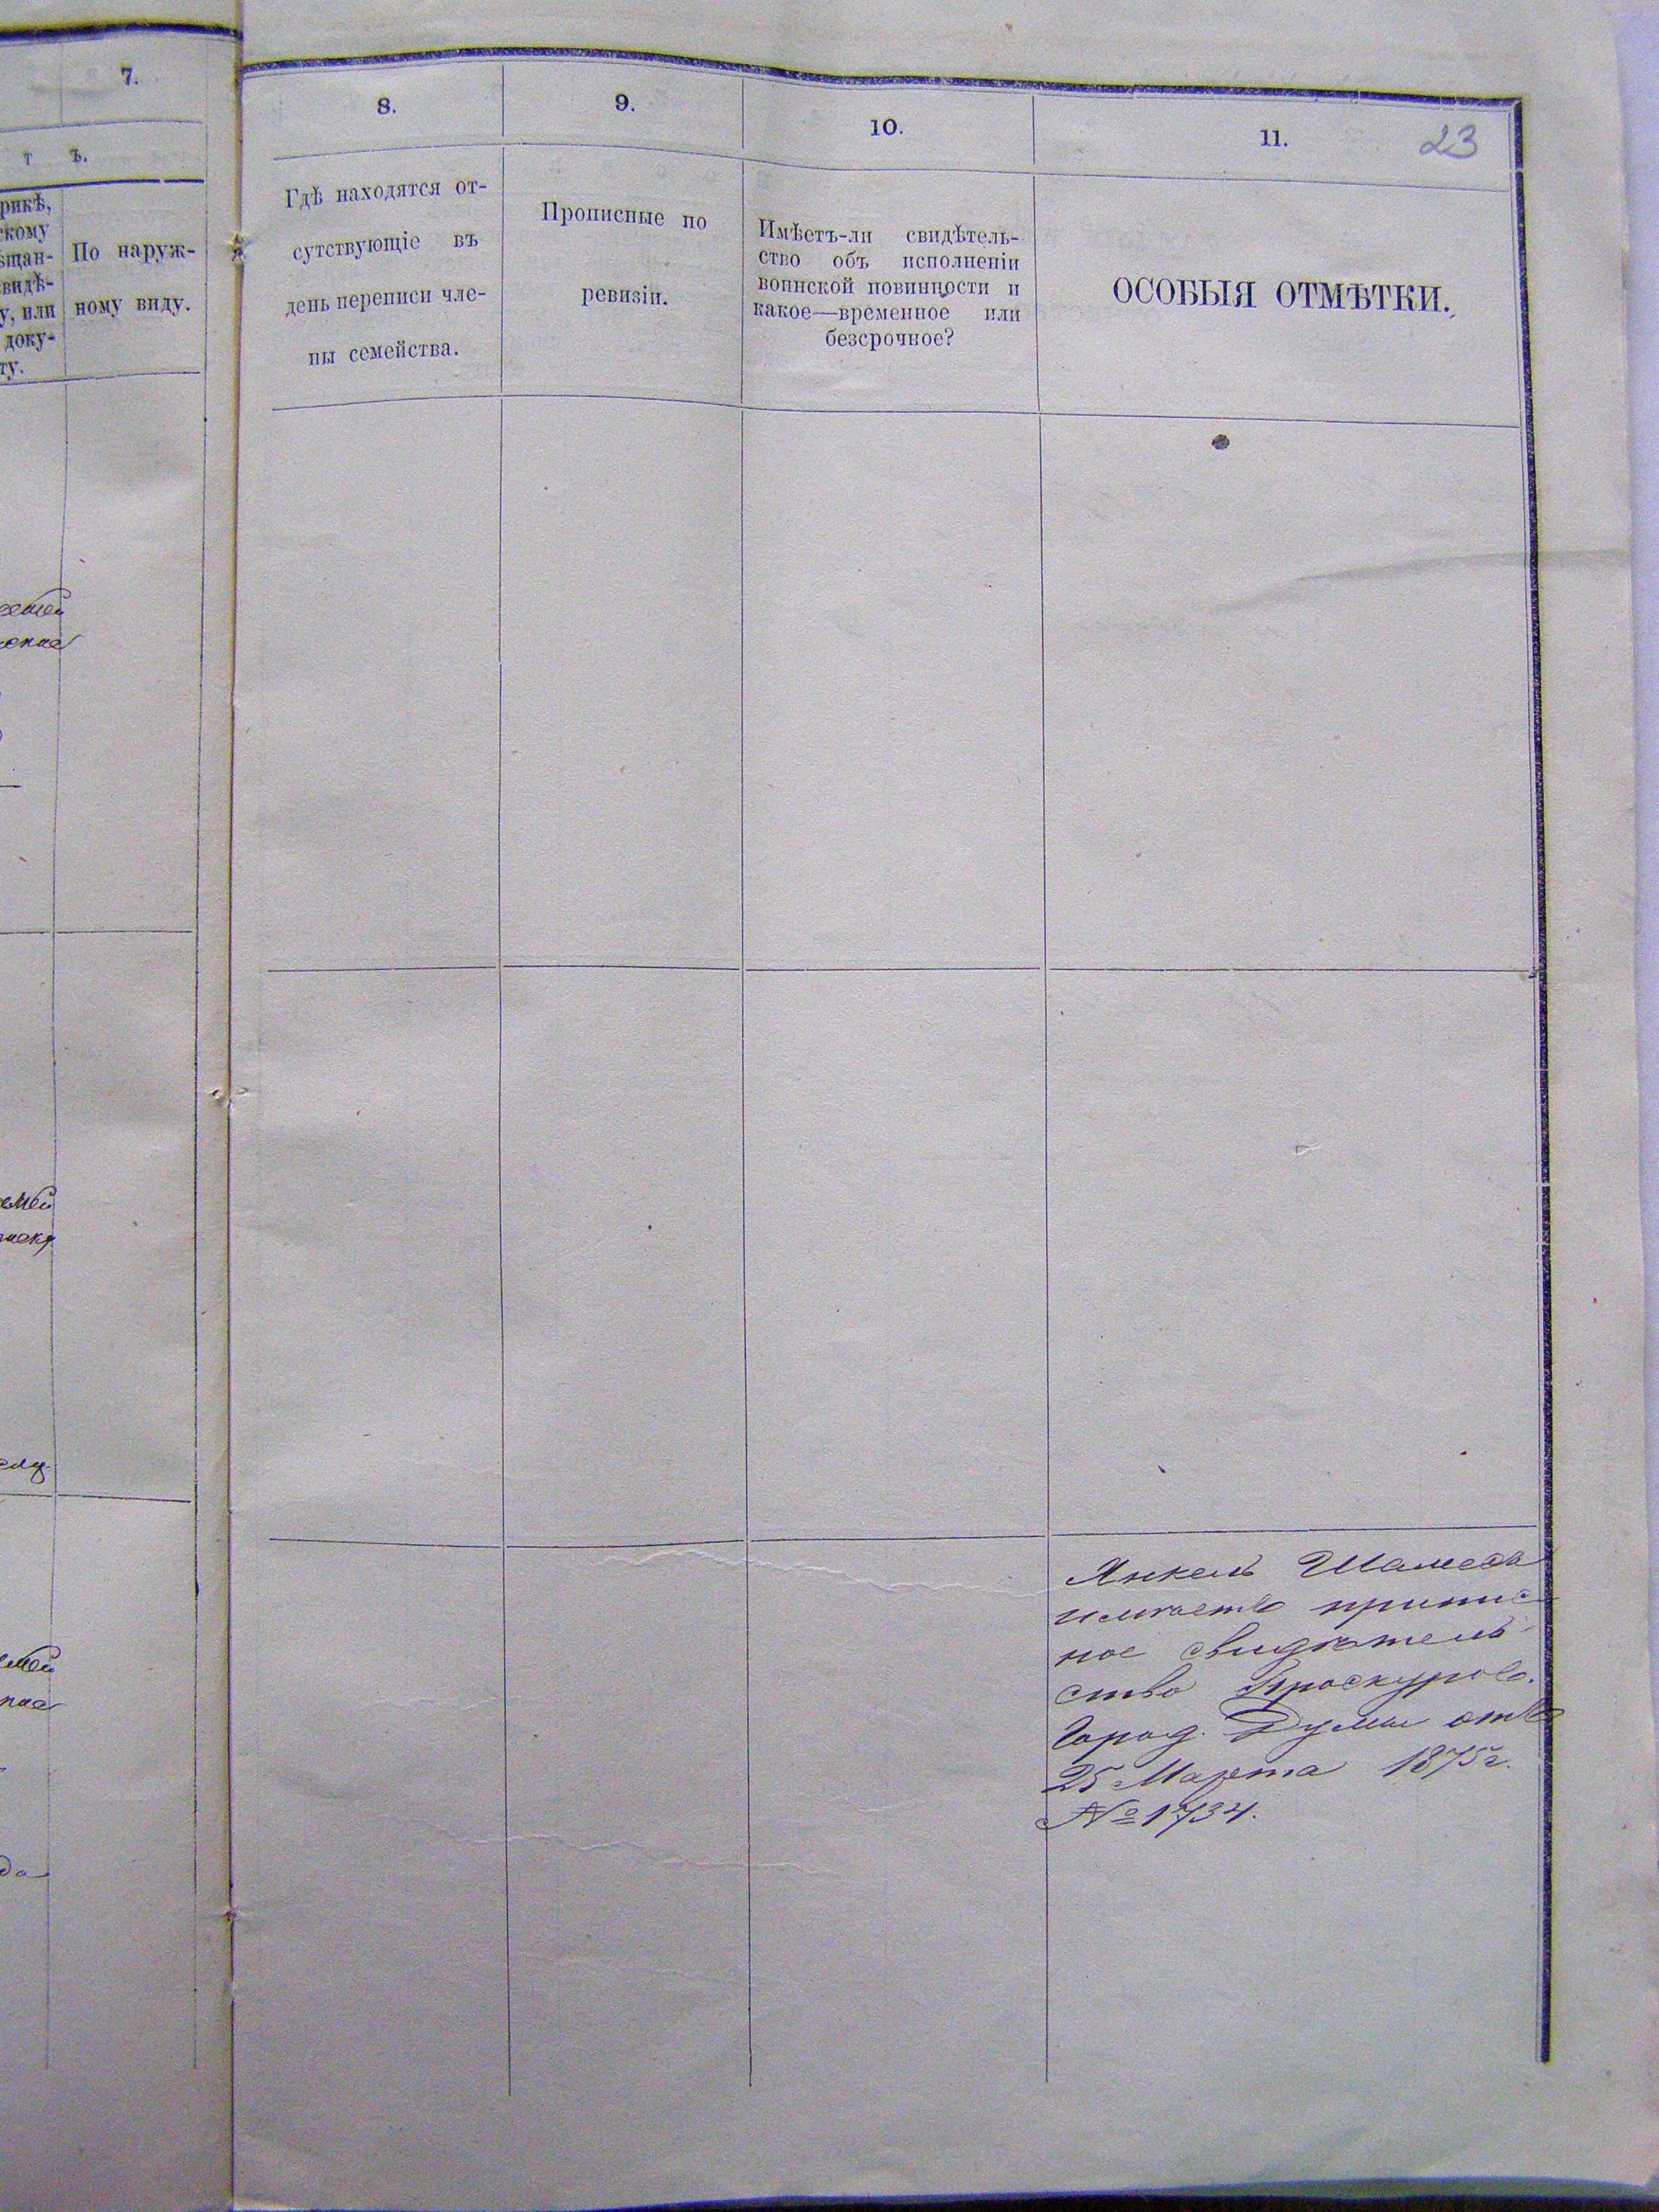 7.
т ъ.
рикѣ,
скому
ѣщан-
видѣ-
у, или
доку-
ту.
По наруж-
ному виду.
8.
9.
10.
11.
23
Гдѣ находятся от-
сутствующіе въ
день переписи чле-
ны семейства.
Прописные по
ревизіи.
Имѣетъ-ли свидѣтель-
ство объ исполненіи
воинской повинности и
какое—временное или
безсрочное?
ОСОБЫЯ ОТМѢТКИ.
Янкель Шамесъ
имѣетъ припис
ное свидѣтель
ство Проскуров.
Город. Думы отъ
25 Марта 1875 г.
№ 1734.